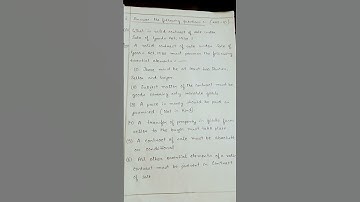 Answer the following questions :-
What is valid contract of sale under
Sale of Goods Act, 1930 ?
A valid contract of sale under Sale of
Goods Act, 1930 must possess the following
essential elements :-
(i) There must be at least two Parties,
Seller and buyer
(ii) Subject matter of the contract must be
goods meaning only movable goods
A price in money should be paid or
promised ( Not in kind )
(iv) A transfer of property in goods from
seller to the buyer must take place
(v) A contract of sale must be absolute
or conditional
All other essential elements of a valid
contract must be present in contract
of sale